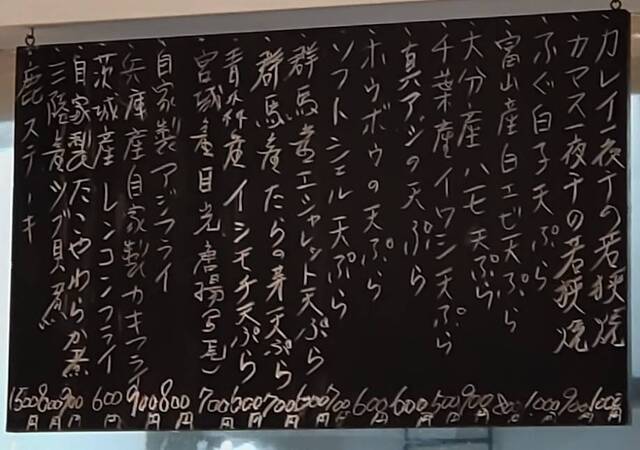 カレイ一夜干の若狭焼 1000円
カマス一夜干の若狭焼 900円
ふぐ白子天ぷら 1000円
富山産白エビ天ぷら 800円
大分産ハモ天ぷら 900円
千葉産イワシ天ぷら 500円
真アジの天ぷら 600円
ホウボウの天ぷら 600円
ソフトシェル天ぷら 700円
群馬産エシャレット天ぷら 600円
群馬産たらの芽天ぷら 700円
青森産イシモチ天ぷら 600円
宮城産目光唐揚 700円
自家製アジフライ 800円
兵庫産自家製カキフライ 900円
茨城産レンコンフライ 600円
自家製たこやわらか煮 900円
三陸産ツブ貝煮 800円
鹿ステーキ 1500円